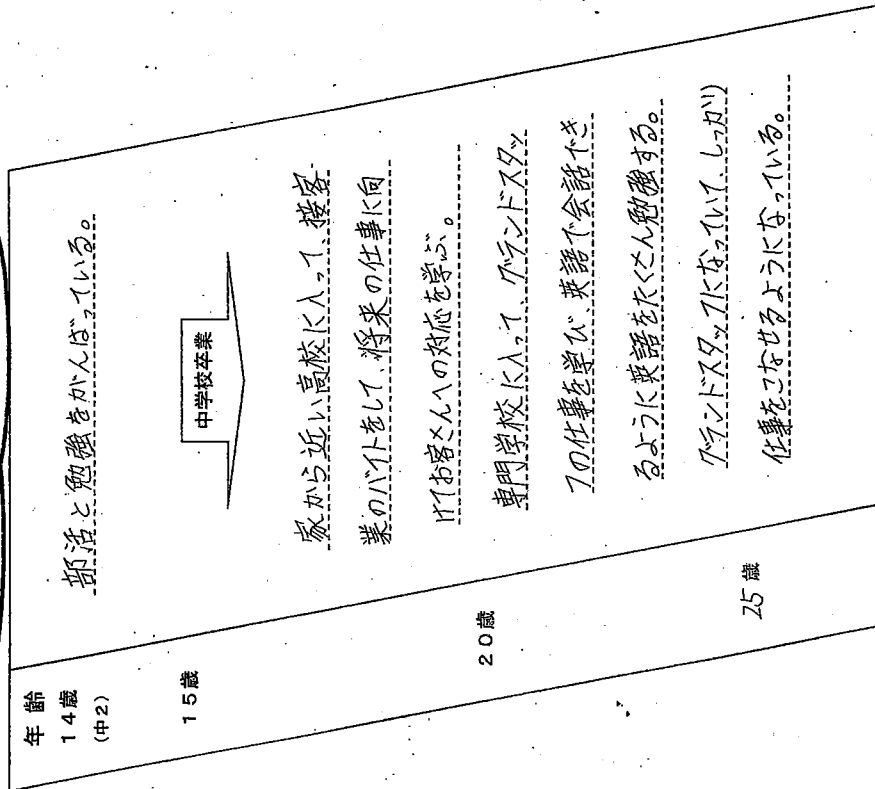 年齢
14歳
(中2)
部活と勉強をがんばっている。
中学校卒業
15歳
家から近い高校に入って、接客
業のバイトをして、将来の仕事に向
けてお客さんへの対応を学ぶ。
20歳
専門学校に入って、グランドスタッ
フの仕事を学び、英語で会話でき
るように英語をたくさん勉強する。
25歳
グランドスタッフになっていて、しっかり
仕事をこなせるようになっている。